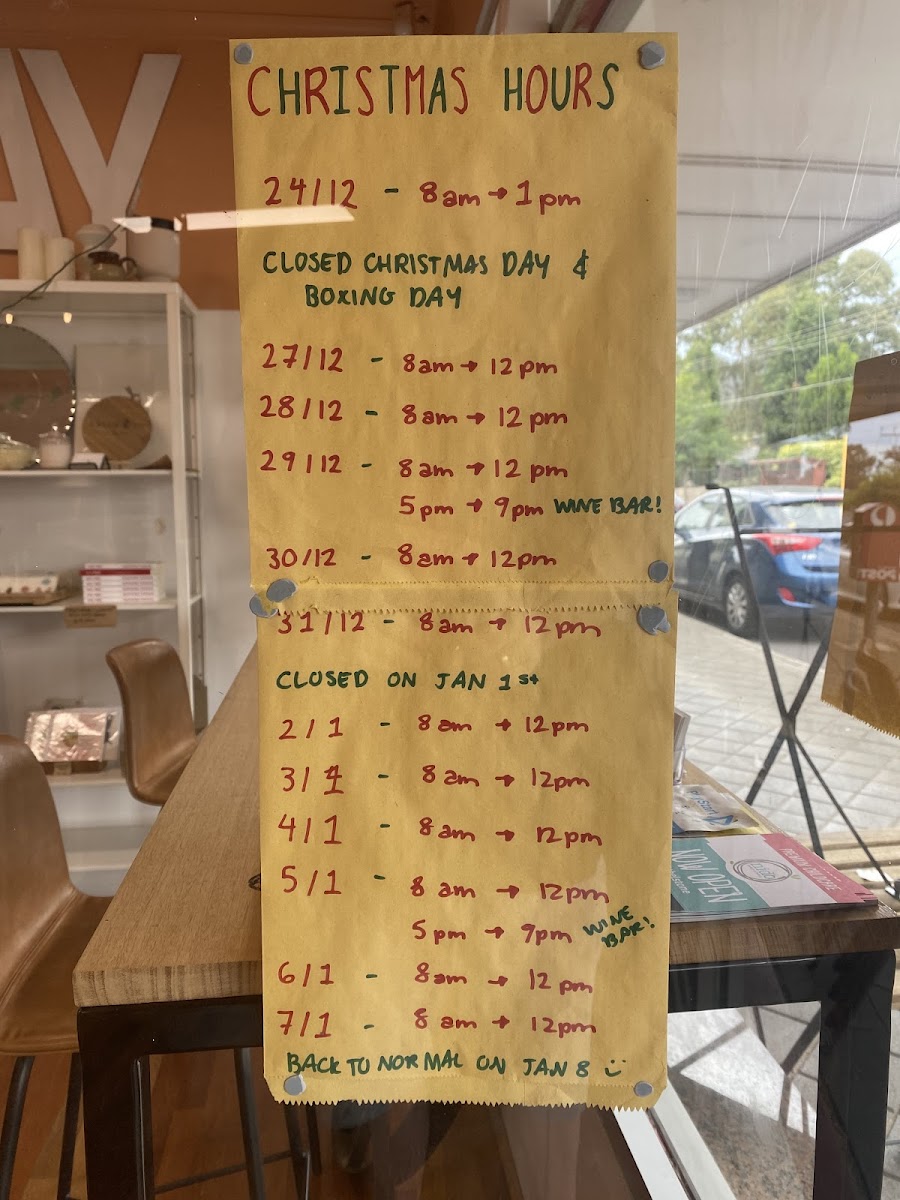 AY
CHRISTMAS HOURS
24/12 - 8am → 1pm
CLOSED CHRISTMAS DAY &
BOXING DAY
27/12 - 8am → 12pm
28/12 - 8am → 12pm
29/12 - 8am → 12pm
5pm → 9pm WINE BAR!
30/12 - 8am → 12pm
31/12 - 8am → 12pm
CLOSED ON JAN 1st
2/1 - 8am → 12pm
3/1 - 8am → 12pm
4/1 - 8am → 12pm
5/1 - 8am → 12pm
5pm → 9pm WINE
BAR!
6/1 - 8am → 12pm
7/1 - 8am → 12pm
BACK TO NORMAL ON JAN 8 :)
NOW OPEN
POST